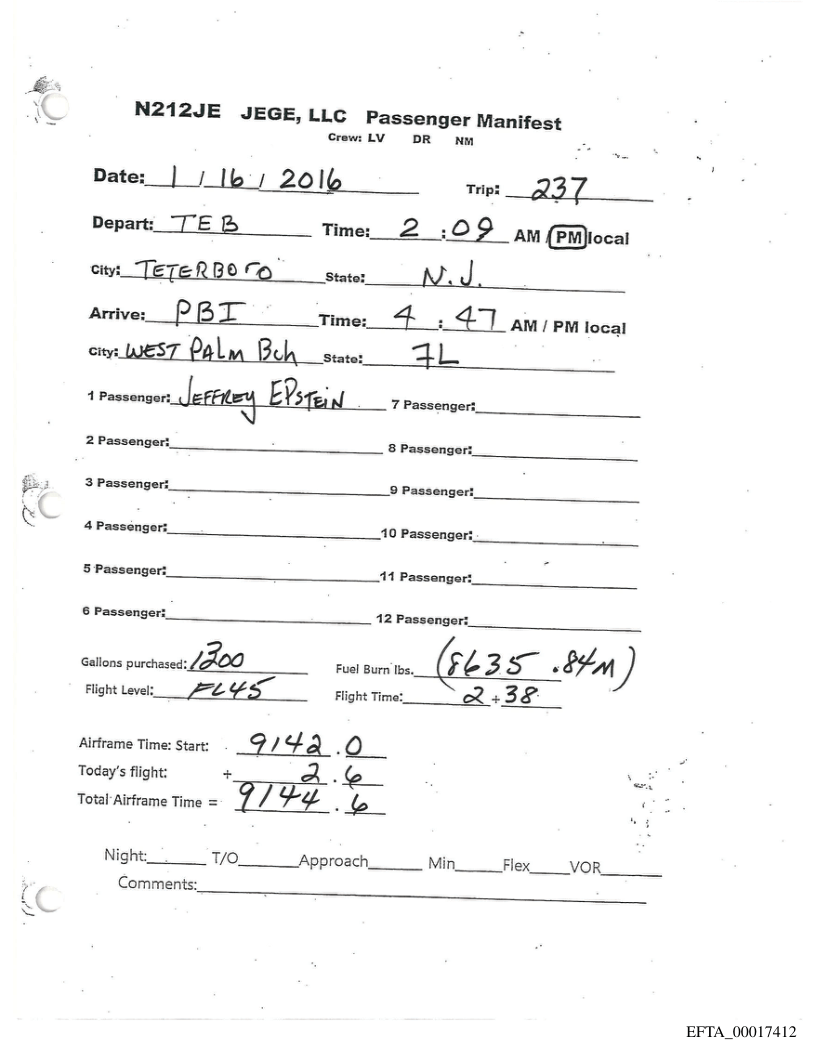 N212JE JEGE, LLC Passenger Manifest
Crew: LV DR NM
Date: 1 / 16 / 2016 Trip: 237
Depart: TEB Time: 2 : 09 AM / PM local
City: TETERBORO State: N.J.
Arrive: PBI Time: 4 : 47 AM / PM local
City: WEST PALM Bch State: FL
1 Passenger: JEFFREY EPSTEIN 7 Passenger:
2 Passenger: 8 Passenger:
3 Passenger: 9 Passenger:
4 Passenger: 10 Passenger:
5 Passenger: 11 Passenger:
6 Passenger: 12 Passenger:
Gallons purchased: 1300 Fuel Burn lbs. (8635 .84M)
Flight Level: FL45 Flight Time: 2 + 38
Airframe Time: Start: 9142 . 0
Today's flight: + 2 . 6
Total Airframe Time = 9144 . 6
Night: T/O Approach Min Flex VOR
Comments:
EFTA_00017412